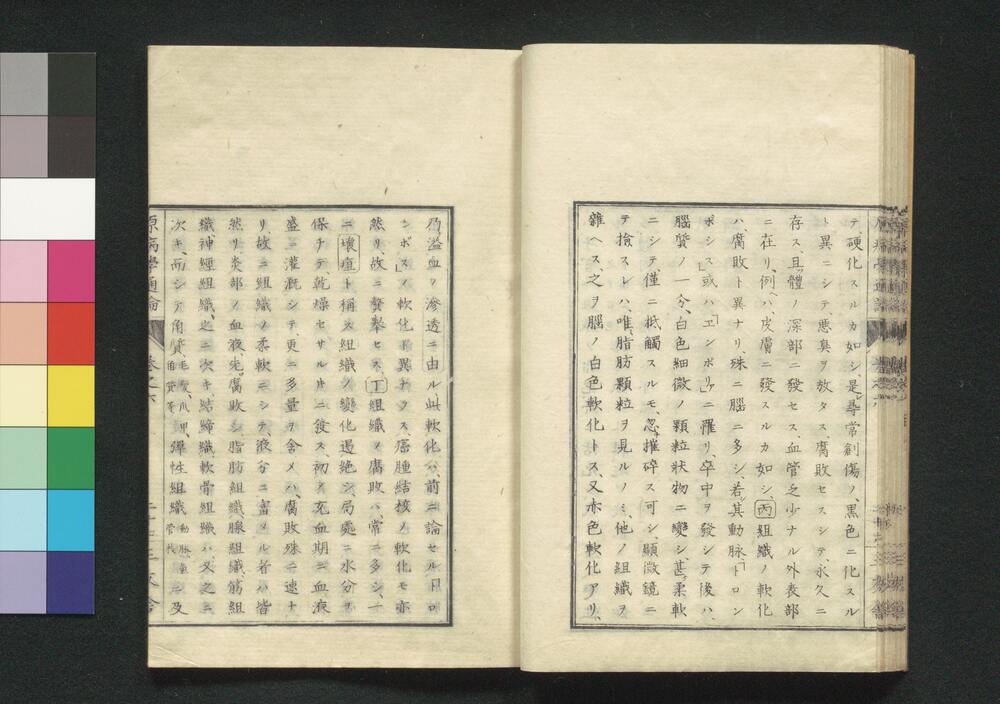 テ、硬化スルカ如シ、是レ尋常創傷ノ、黒色ニ化スル
ト異ニシテ悪臭ヲ放タス、腐敗セスシテ、永久ニ
存ス、且ツ體ノ深部ニ發セス、血管乏少ナル外表部
ニ在リ、例ヘハ、皮膚ニ發スルカ如シ、丙組織ノ軟化
ハ腐敗ト異ナリ、殊ニ腦ニ多シ、若シ其動脉「トロン
ボシス」或ハ「エンボリ」ニ罹リ、卒中ヲ發シテ後ハ、
腦質ノ一分、白色細微ノ顆粒狀物ニ變シ、甚タ柔軟
ニシテ、僅ニ抵觸スルモ、忽チ摧碎ス可シ、顯微鏡ニ
テ撿スレハ、唯脂肪顆粒ヲ見ルノミ、他ノ組織ヲ
雜ヘス、之ヲ腦ノ白色軟化トス、又赤色軟化アリ、
乃溢血ノ滲透ニ由ル、此軟化ハ、前ニ論セル「トロ
ンボス」ノ軟化ト異ナラス、癌腫結核ノ軟化モ亦
然リ、故ニ贅擧セス、丁組織ノ腐敗ハ、常ニ多シ、一
ニ壞疽ト稱ス、組織ノ變化過絶シ、局處ニ水分ヲ
保チテ、乾燥セサル片ニ發ス、初メ充血期ニ血液
盛ニ灌漑シテ、更ニ多量ヲ含メハ、腐敗殊ニ速ナ
リ、故ニ組織ノ柔軟ニシテ、液分ニ富メル者ハ皆
然リ、炎部ノ血液、先ツ腐敗シ、脂肪組織、腺組織、筋組
織、神經組織、之ニ次キ、結締織、軟骨組織ハ、又之ニ
次キ、而シテ角質、毛髮、爪甲、角質等彈性組織動脉、童ニ及
原病學通論 巻之六